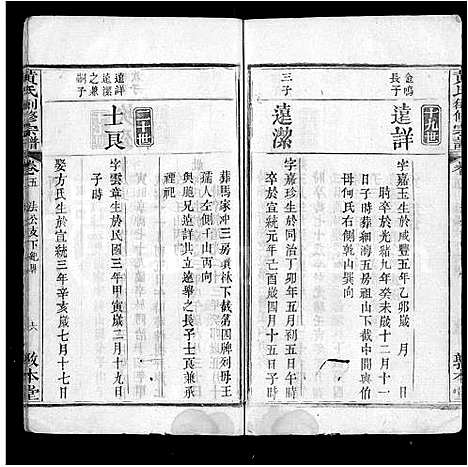 黃氏創修宗譜
金鳴
長子
遠詳
十九世
字嘉玉生於咸豐五年乙卯歲 月 日
時卒於光緒九年癸未歲十二月十一
日子時葬細溝五房祖山下截中間與伯
母何氏右側乾山巽向
三子
遠潔
字嘉珍生於同治丁卯年五月初五日午時
卒於宣統元年己酉歲四月十五日子時
葬馬家冲三房眞林下截第四牌列母王
孺人左側壬山丙向
與胞兄遠詳共立遠舉之長子士艮兼承
禋祀
遠詳
遠潔
之兼
祧子
士艮
字雲章生於民國三年甲寅歲三月十九日
子時
娶方氏生於宣統三年辛亥歲七月十七日
黃氏創修宗譜
卷五
敦本堂